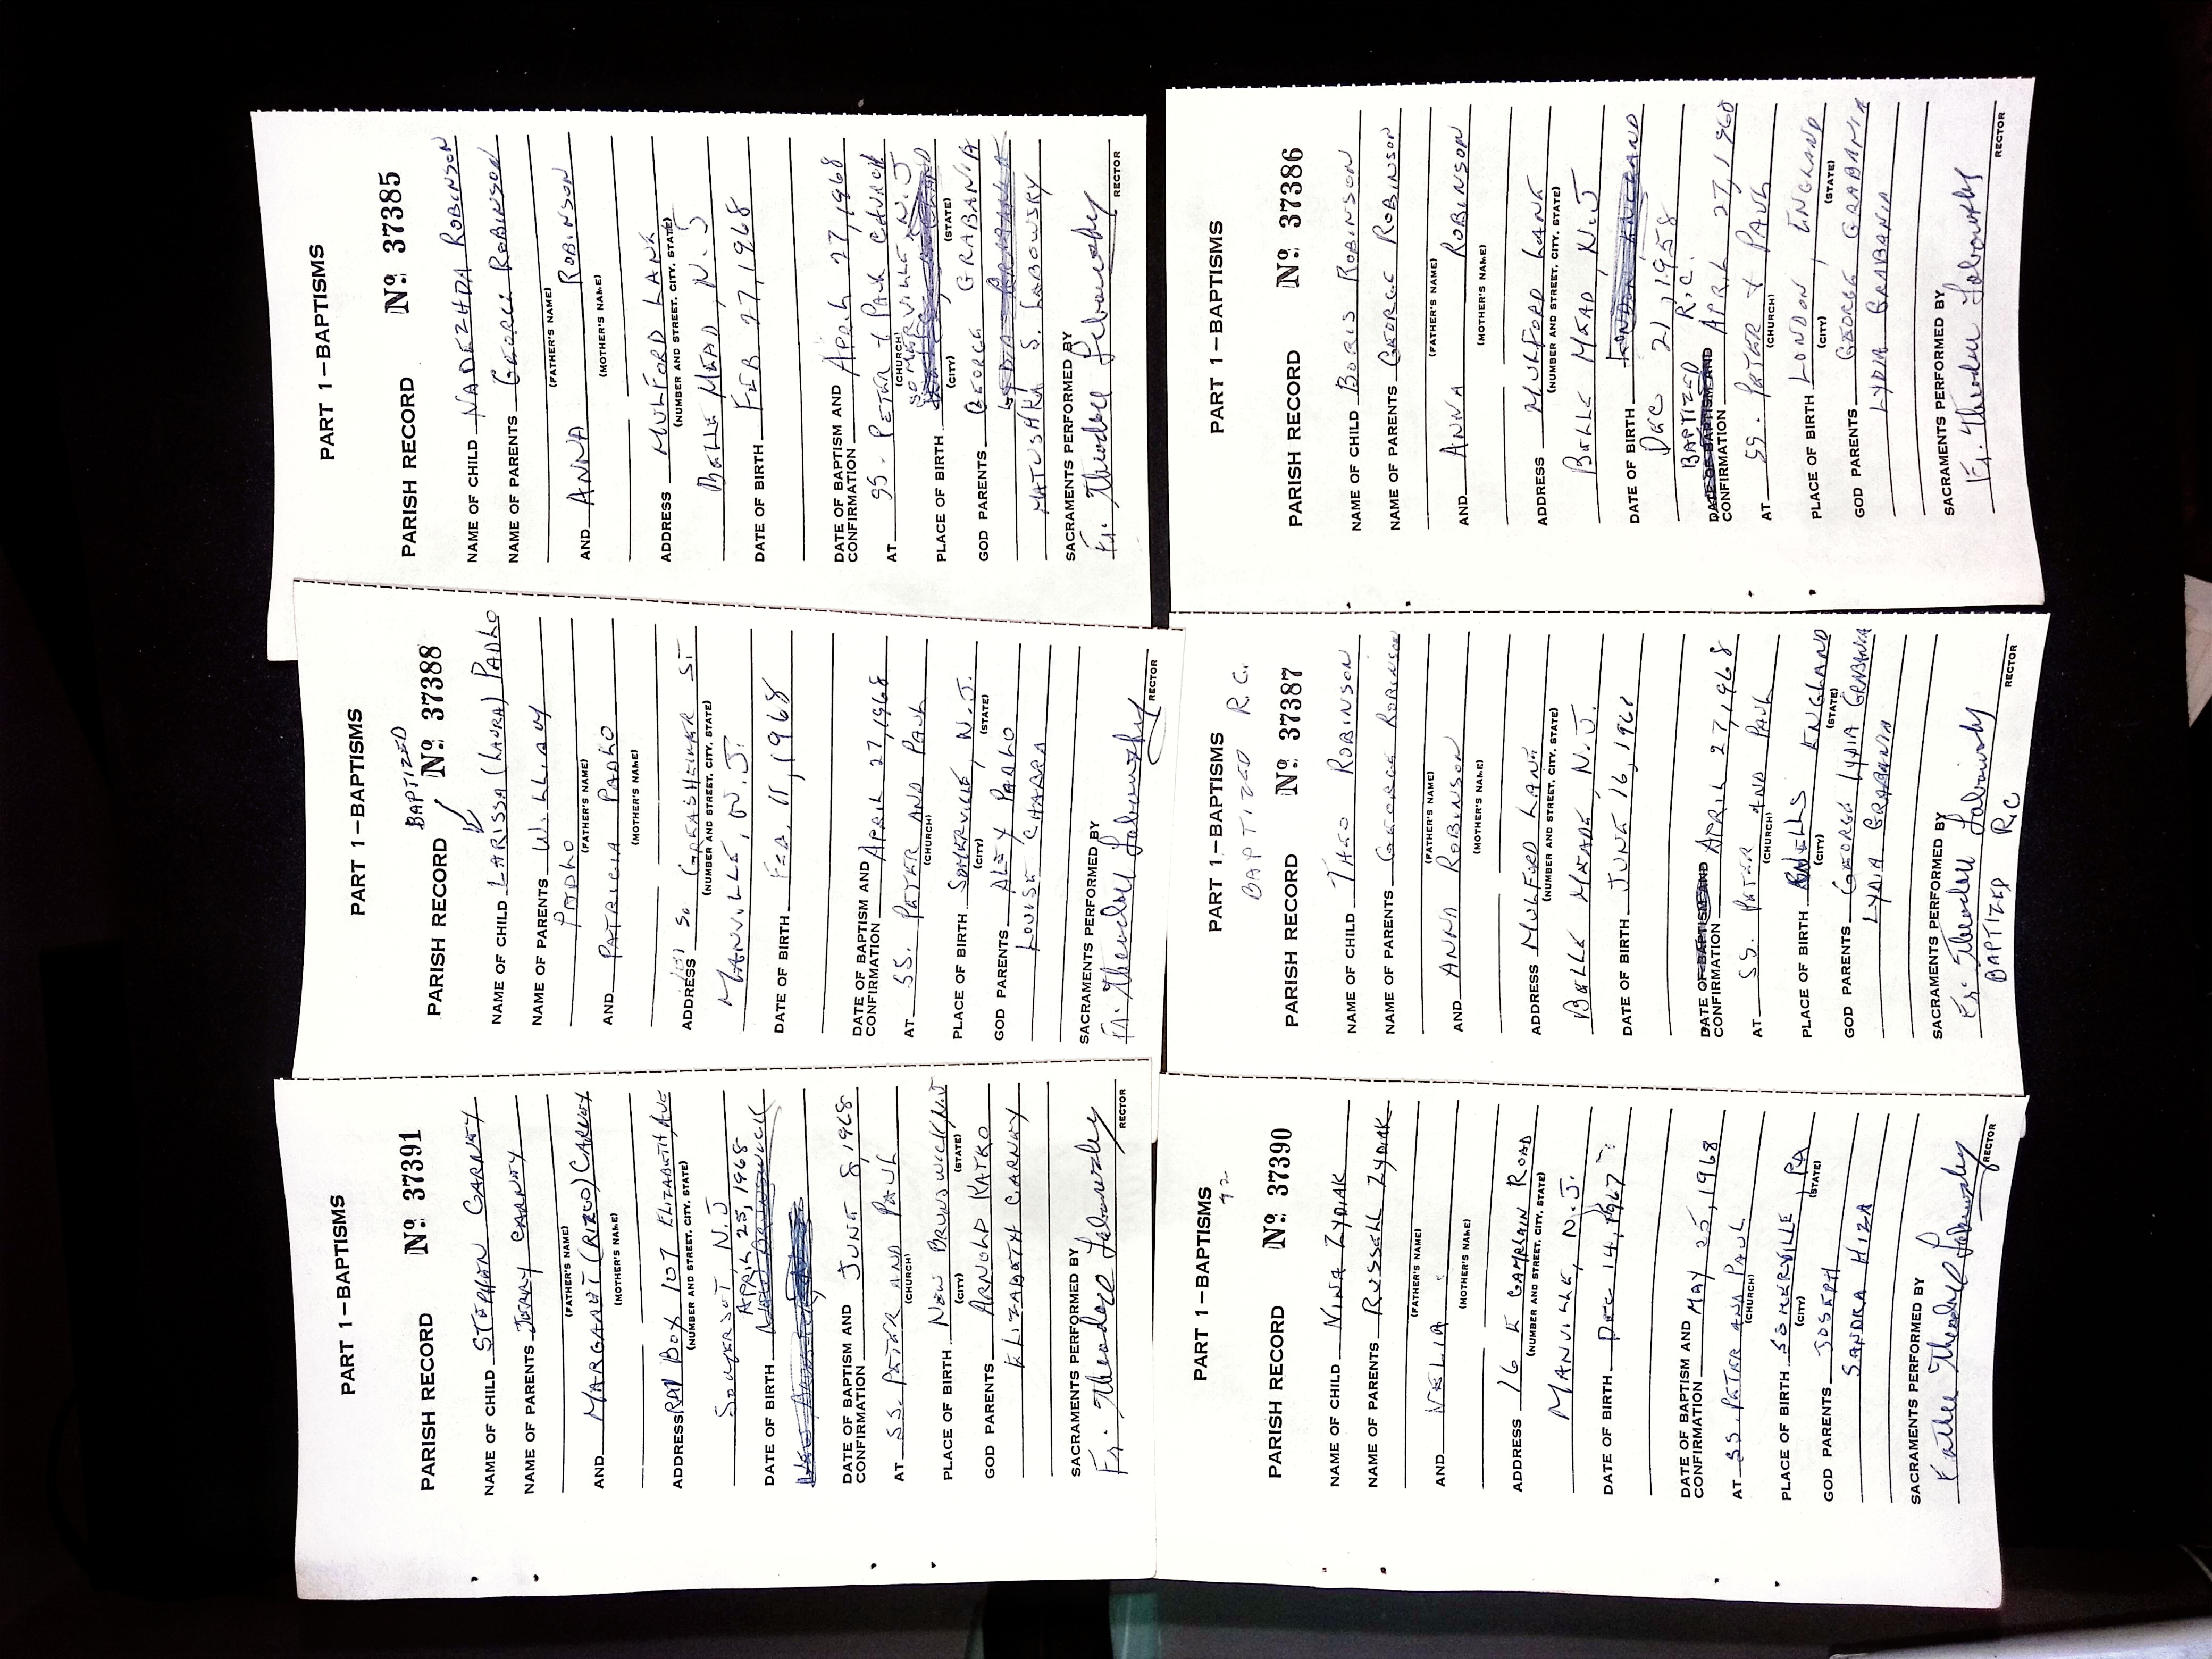 PART 1—BAPTISMS
PARISH RECORD Nº 37391
NAME OF CHILD STEPHEN CARNEY
NAME OF PARENTS JERRY CARNEY
(FATHER'S NAME)
AND MARGARET (RIZCO) CARNEY
(MOTHER'S NAME)
ADDRESS BOX 107 ELIZABETH AVE
(NUMBER AND STREET, CITY, STATE)
SOMERSET, N.J
APRIL 25, 1968
DATE OF BIRTH NEW BRUNSWICK
DATE OF BAPTISM AND
CONFIRMATION JUNE 8, 1968
AT SS. PETER AND PAUL
(CHURCH)
PLACE OF BIRTH NEW BRUNSWICK, N.J
(CITY) (STATE)
GOD PARENTS ARNOLD KATKO
ELIZABETH CARNEY
SACRAMENTS PERFORMED BY
Fr. Theodore Labowsky
RECTOR
PART 1—BAPTISMS
BAPTIZED
PARISH RECORD Nº 37388
NAME OF CHILD LARISSA (LAURA) PADLO
NAME OF PARENTS WILLIAM
PADLO
(FATHER'S NAME)
AND PATRICIA PADLO
(MOTHER'S NAME)
ADDRESS 101 SO ST
(NUMBER AND STREET, CITY, STATE)
MANVILLE, N.J.
DATE OF BIRTH FEB. 11, 1968
DATE OF BAPTISM AND
CONFIRMATION APRIL 27, 1968
AT SS. PETER AND PAUL
(CHURCH)
PLACE OF BIRTH SOMERVILLE, N.J.
(CITY) (STATE)
GOD PARENTS ALEX PADLO
LOUISE CHABRA
SACRAMENTS PERFORMED BY
Fr. Theodore Labowsky
RECTOR
PART 1—BAPTISMS
PARISH RECORD Nº 37385
NAME OF CHILD NADEZHDA ROBINSON
NAME OF PARENTS GEORGE ROBINSON
(FATHER'S NAME)
AND ANNA ROBINSON
(MOTHER'S NAME)
ADDRESS MULFORD LANE
(NUMBER AND STREET, CITY, STATE)
BELLE MEAD, N.J
DATE OF BIRTH FEB 27, 1968
DATE OF BAPTISM AND
CONFIRMATION APRIL 27, 1968
AT SS. PETER + PAUL CHURCH
(CHURCH)
SOMERVILLE, N.J
PLACE OF BIRTH ENGLAND
(CITY) (STATE)
GOD PARENTS GEORGE GRABANIA
LYDIA GRABANIA
MATUSHKA S. LABOWSKY
SACRAMENTS PERFORMED BY
Fr. Theodore Labowsky
RECTOR
PART 1—BAPTISMS
PARISH RECORD Nº 37390
NAME OF CHILD NINA ZYDIAK
NAME OF PARENTS RUSSELL ZYDIAK
(FATHER'S NAME)
AND VELIA
(MOTHER'S NAME)
ADDRESS 16 E CAMPLAIN ROAD
(NUMBER AND STREET, CITY, STATE)
MANVILLE, N.J.
DATE OF BIRTH DEC 14, 1967
DATE OF BAPTISM AND
CONFIRMATION MAY 25, 1968
AT SS. PETER AND PAUL
(CHURCH)
PLACE OF BIRTH SOMERVILLE, PA
(CITY) (STATE)
GOD PARENTS JOSEPH
SANDRA HIZA
SACRAMENTS PERFORMED BY
Father Theodore Labowsky
RECTOR
PART 1—BAPTISMS
BAPTIZED R.C.
PARISH RECORD Nº 37387
NAME OF CHILD THEO ROBINSON
NAME OF PARENTS GEORGE ROBINSON
(FATHER'S NAME)
AND ANNA ROBINSON
(MOTHER'S NAME)
ADDRESS MULFORD LANE
(NUMBER AND STREET, CITY, STATE)
BELLE MEADE, N.J.
DATE OF BIRTH JUNE 16,
DATE OF BAPTISM AND
CONFIRMATION APRIL 27, 1968
AT SS. PETER AND PAUL
(CHURCH)
PLACE OF BIRTH ENGLAND
(CITY) (STATE)
GOD PARENTS GEORGE LYDIA GRABANIA
LYDIA GRABANIA
SACRAMENTS PERFORMED BY
Fr. Theodore Labowsky
RECTOR
BAPTIZED R.C
PART 1—BAPTISMS
PARISH RECORD Nº 37386
NAME OF CHILD BORIS ROBINSON
NAME OF PARENTS GEORGE ROBINSON
(FATHER'S NAME)
AND ANNA ROBINSON
(MOTHER'S NAME)
ADDRESS MULFORD LANE
(NUMBER AND STREET, CITY, STATE)
BELLE MEAD, N.J
DATE OF BIRTH LONDON, ENGLAND
DEC 21, 1958
BAPTIZED R.C.
DATE OF BAPTISM AND
CONFIRMATION APRIL 27, 1968
AT SS. PETER + PAUL
(CHURCH)
PLACE OF BIRTH LONDON, ENGLAND
(CITY) (STATE)
GOD PARENTS GEORGE GRABANIA
LYDIA GRABANIA
SACRAMENTS PERFORMED BY
Fr. Theodore Labowsky
RECTOR